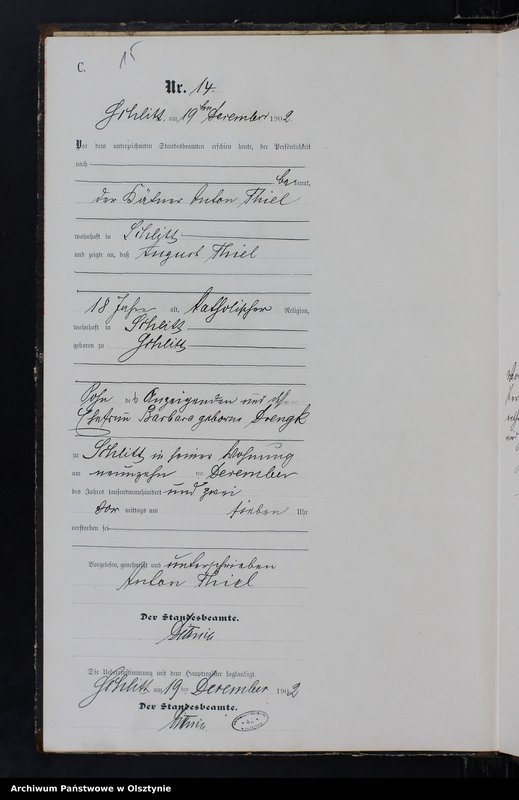 15
C.
Nr. 14.
Schlitt, am 19ten Dezember 1902.
Vor dem unterzeichneten Standesbeamten erschien heute, der Persönlichkeit
nach
bekannt,
der Kätner Anton Thiel
wohnhaft in Schlitt
und zeigte an, daß August Thiel
18 Jahre alt, katholischer Religion,
wohnhaft in Schlitt
geboren zu Schlitt
Sohn des Anzeigenden und
Ehefrau Barbara geborne Drengk
zu Schlitt in seiner Wohnung
am neunzehn ten Dezember
des Jahres tausendneunhundert und zwei
vor mittags um sieben Uhr
verstorben sei
Vorgelesen, genehmigt und unterschrieben
Anton Thiel
Der Standesbeamte.
Die Uebereinstimmung mit dem Hauptregister beglaubigt.
Schlitt am 19 ten Dezember 1902
Der Standesbeamte.
Archiwum Państwowe w Olsztynie